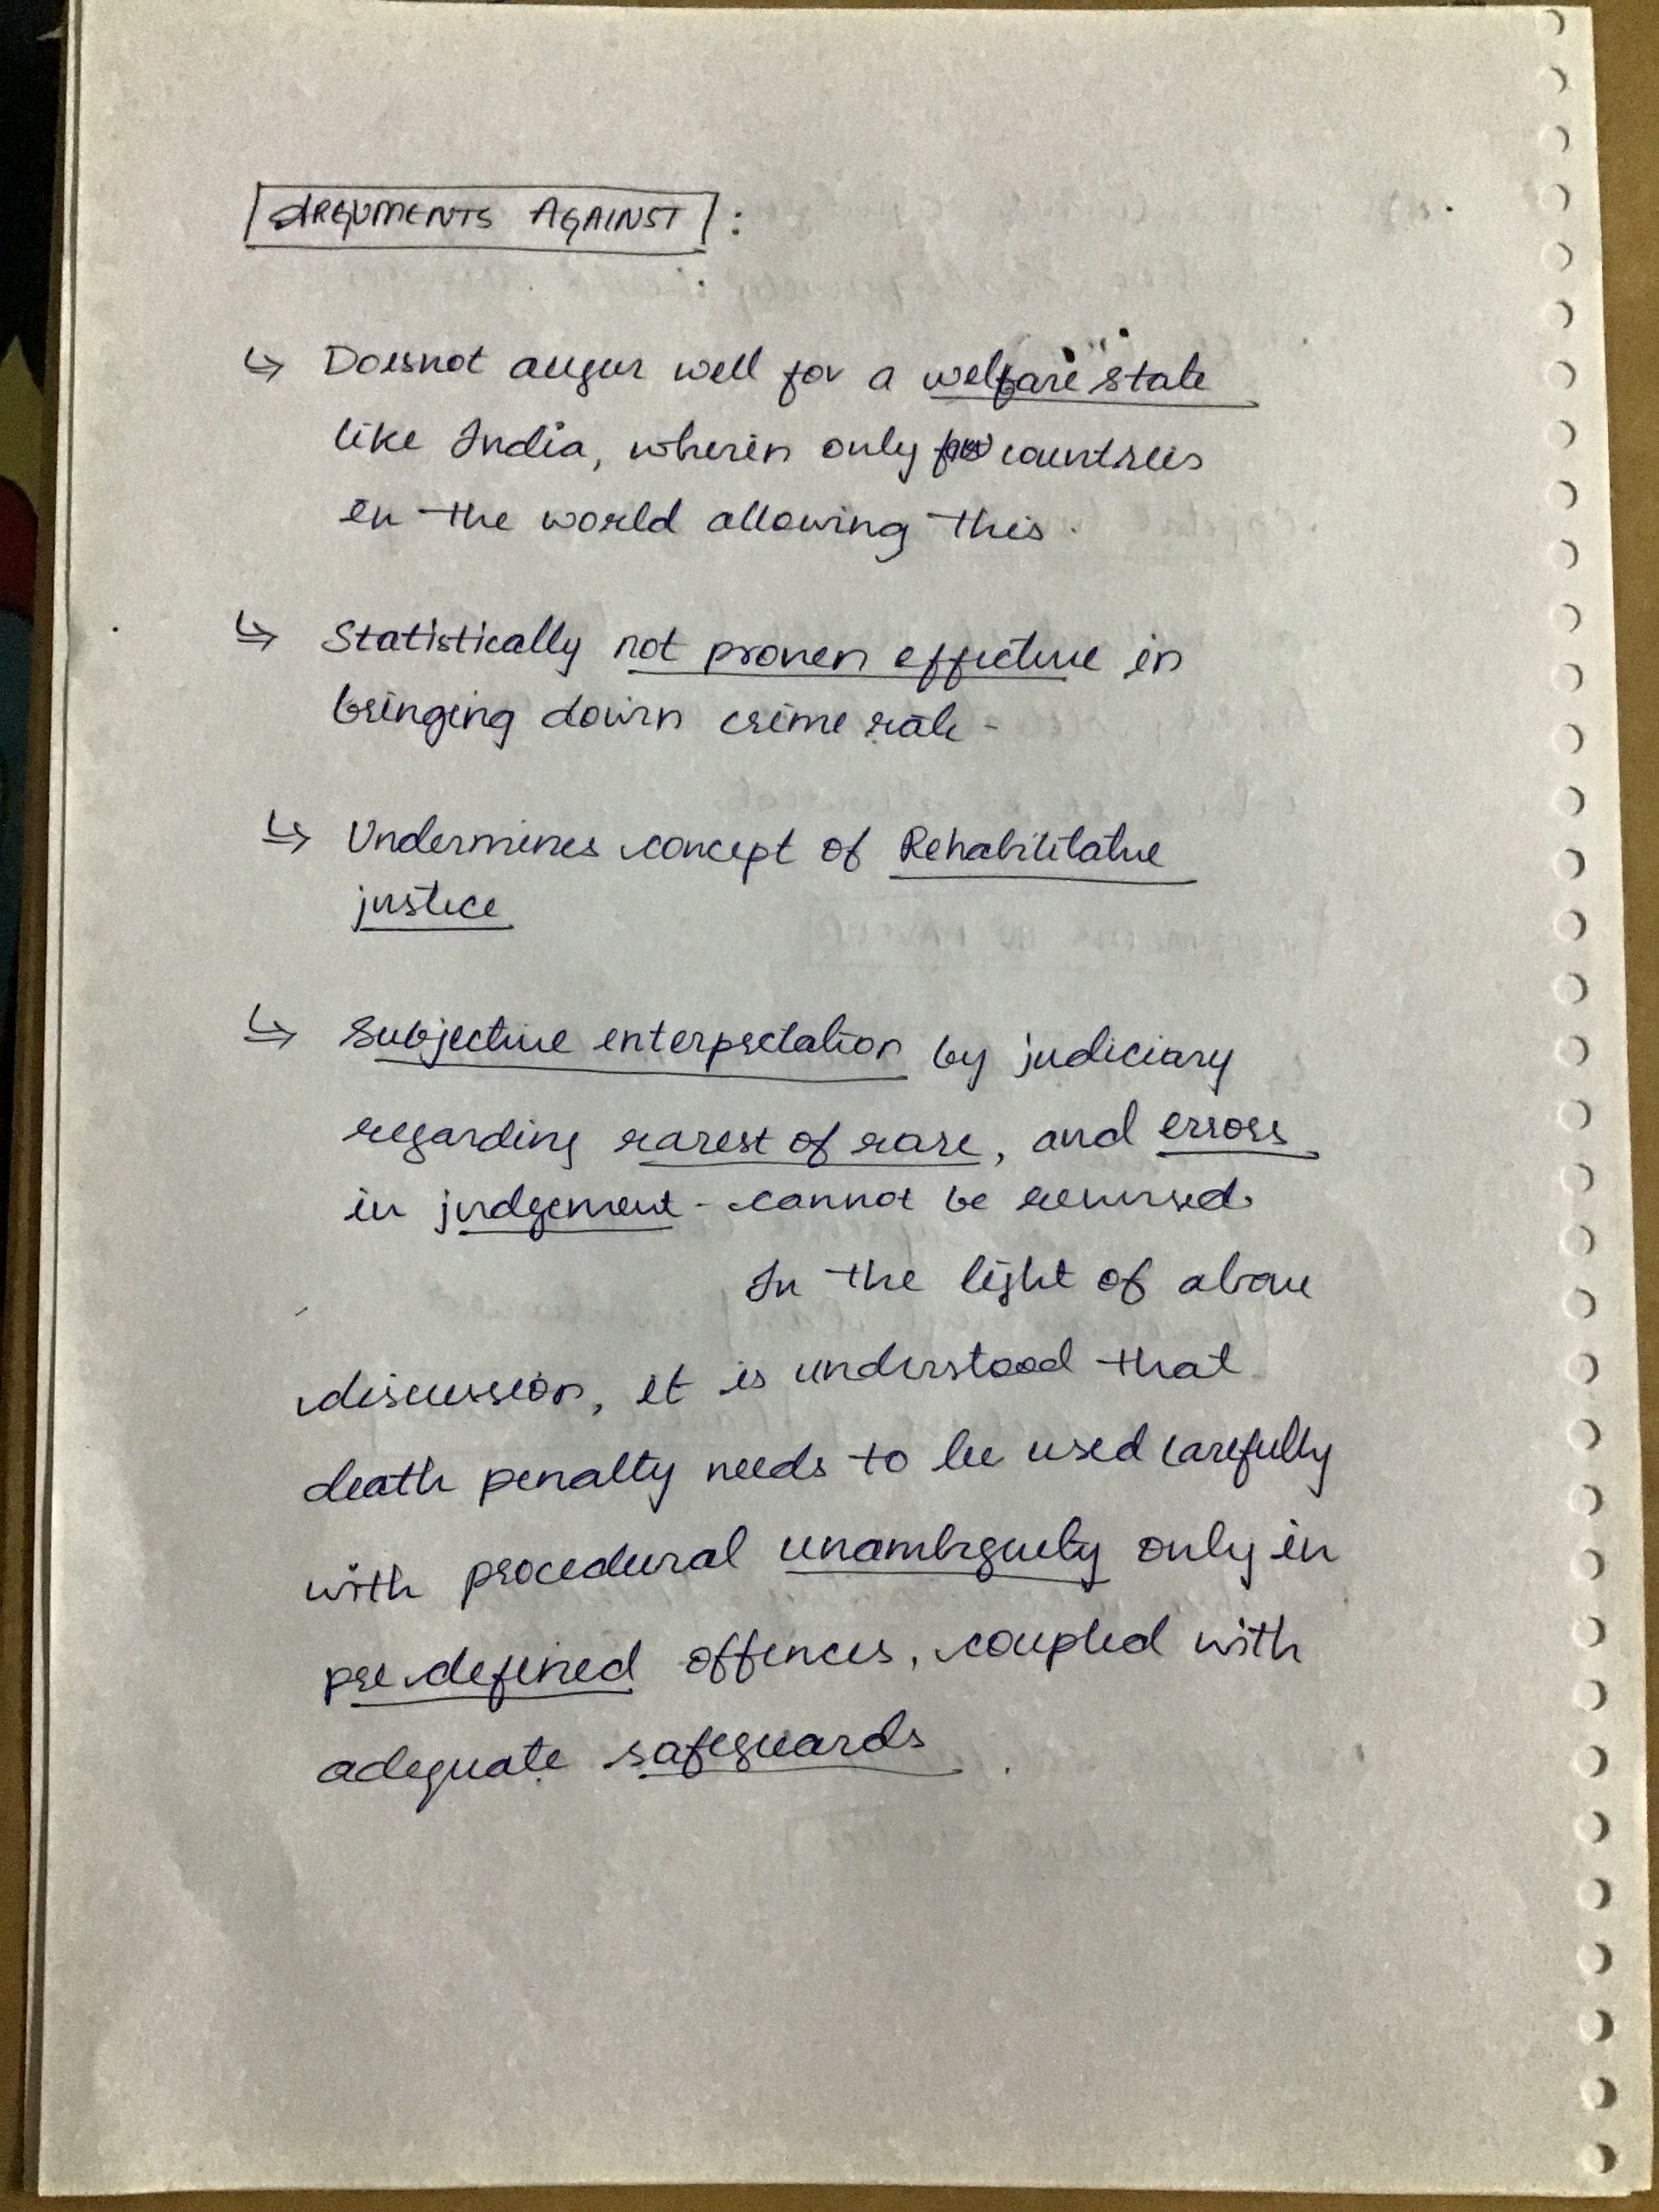 ARGUMENTS AGAINST :
↳ Doesnot augur well for a welfare state
like India, wherein only few countries
in the world allowing this.
↳ Statistically not proven effective in
bringing down crime rate -
↳ Undermines concept of Rehabilitative
justice
↳ Subjective interpretation by judiciary
regarding rarest of rare, and errors
in judgement - cannot be reversed.
In the light of above
discussion, it is understood that
death penalty needs to be used carefully
with procedural unambiguity only in
pre defined offences, coupled with
adequate safeguards.